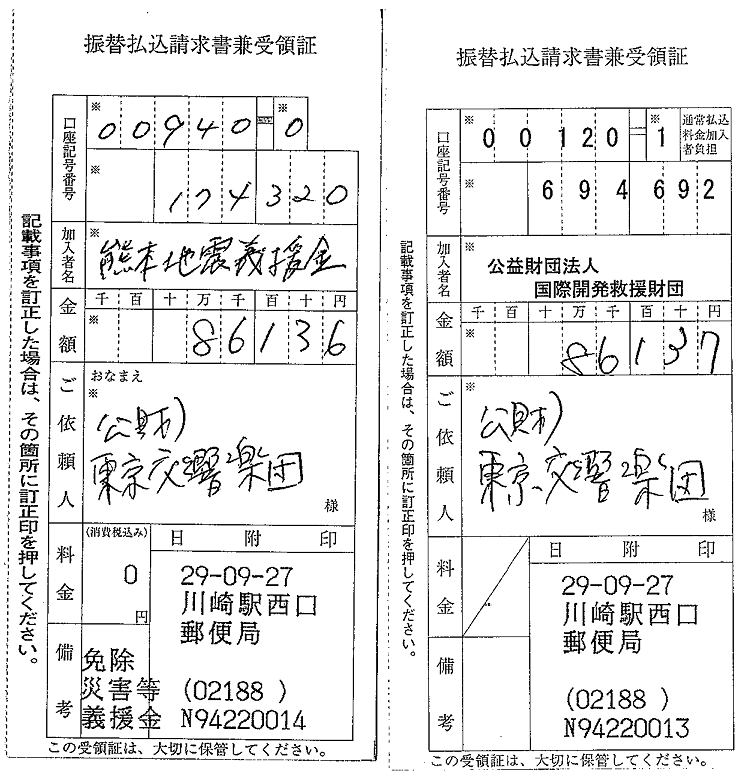 振替払込請求書兼受領証
口座記号番号
※
00940
※
0
※
174320
加入者名
※
熊本地震義援金
金額
千 百 十 万 千 百 十 円
※
86136
ご依頼人
おなまえ
※
公財)
東京交響楽団
様
料金
(消費税込み)
0
円
日 附 印
29-09-27
川崎駅西口
郵便局
(02188 )
N94220014
備考
免除
災害等
義援金
この受領証は、大切に保管してください。
記載事項を訂正した場合は、その箇所に訂正印を押してください。
振替払込請求書兼受領証
口座記号番号
※
00120
※
1
通常払込
料金加入
者負担
※
694692
加入者名
※
公益財団法人
国際開発救援財団
金額
千 百 十 万 千 百 十 円
※
86137
ご依頼人
※
公財)
東京交響楽団
様
料金
日 附 印
29-09-27
川崎駅西口
郵便局
(02188 )
N94220013
備考
この受領証は、大切に保管してください。
記載事項を訂正した場合は、その箇所に訂正印を押してください。